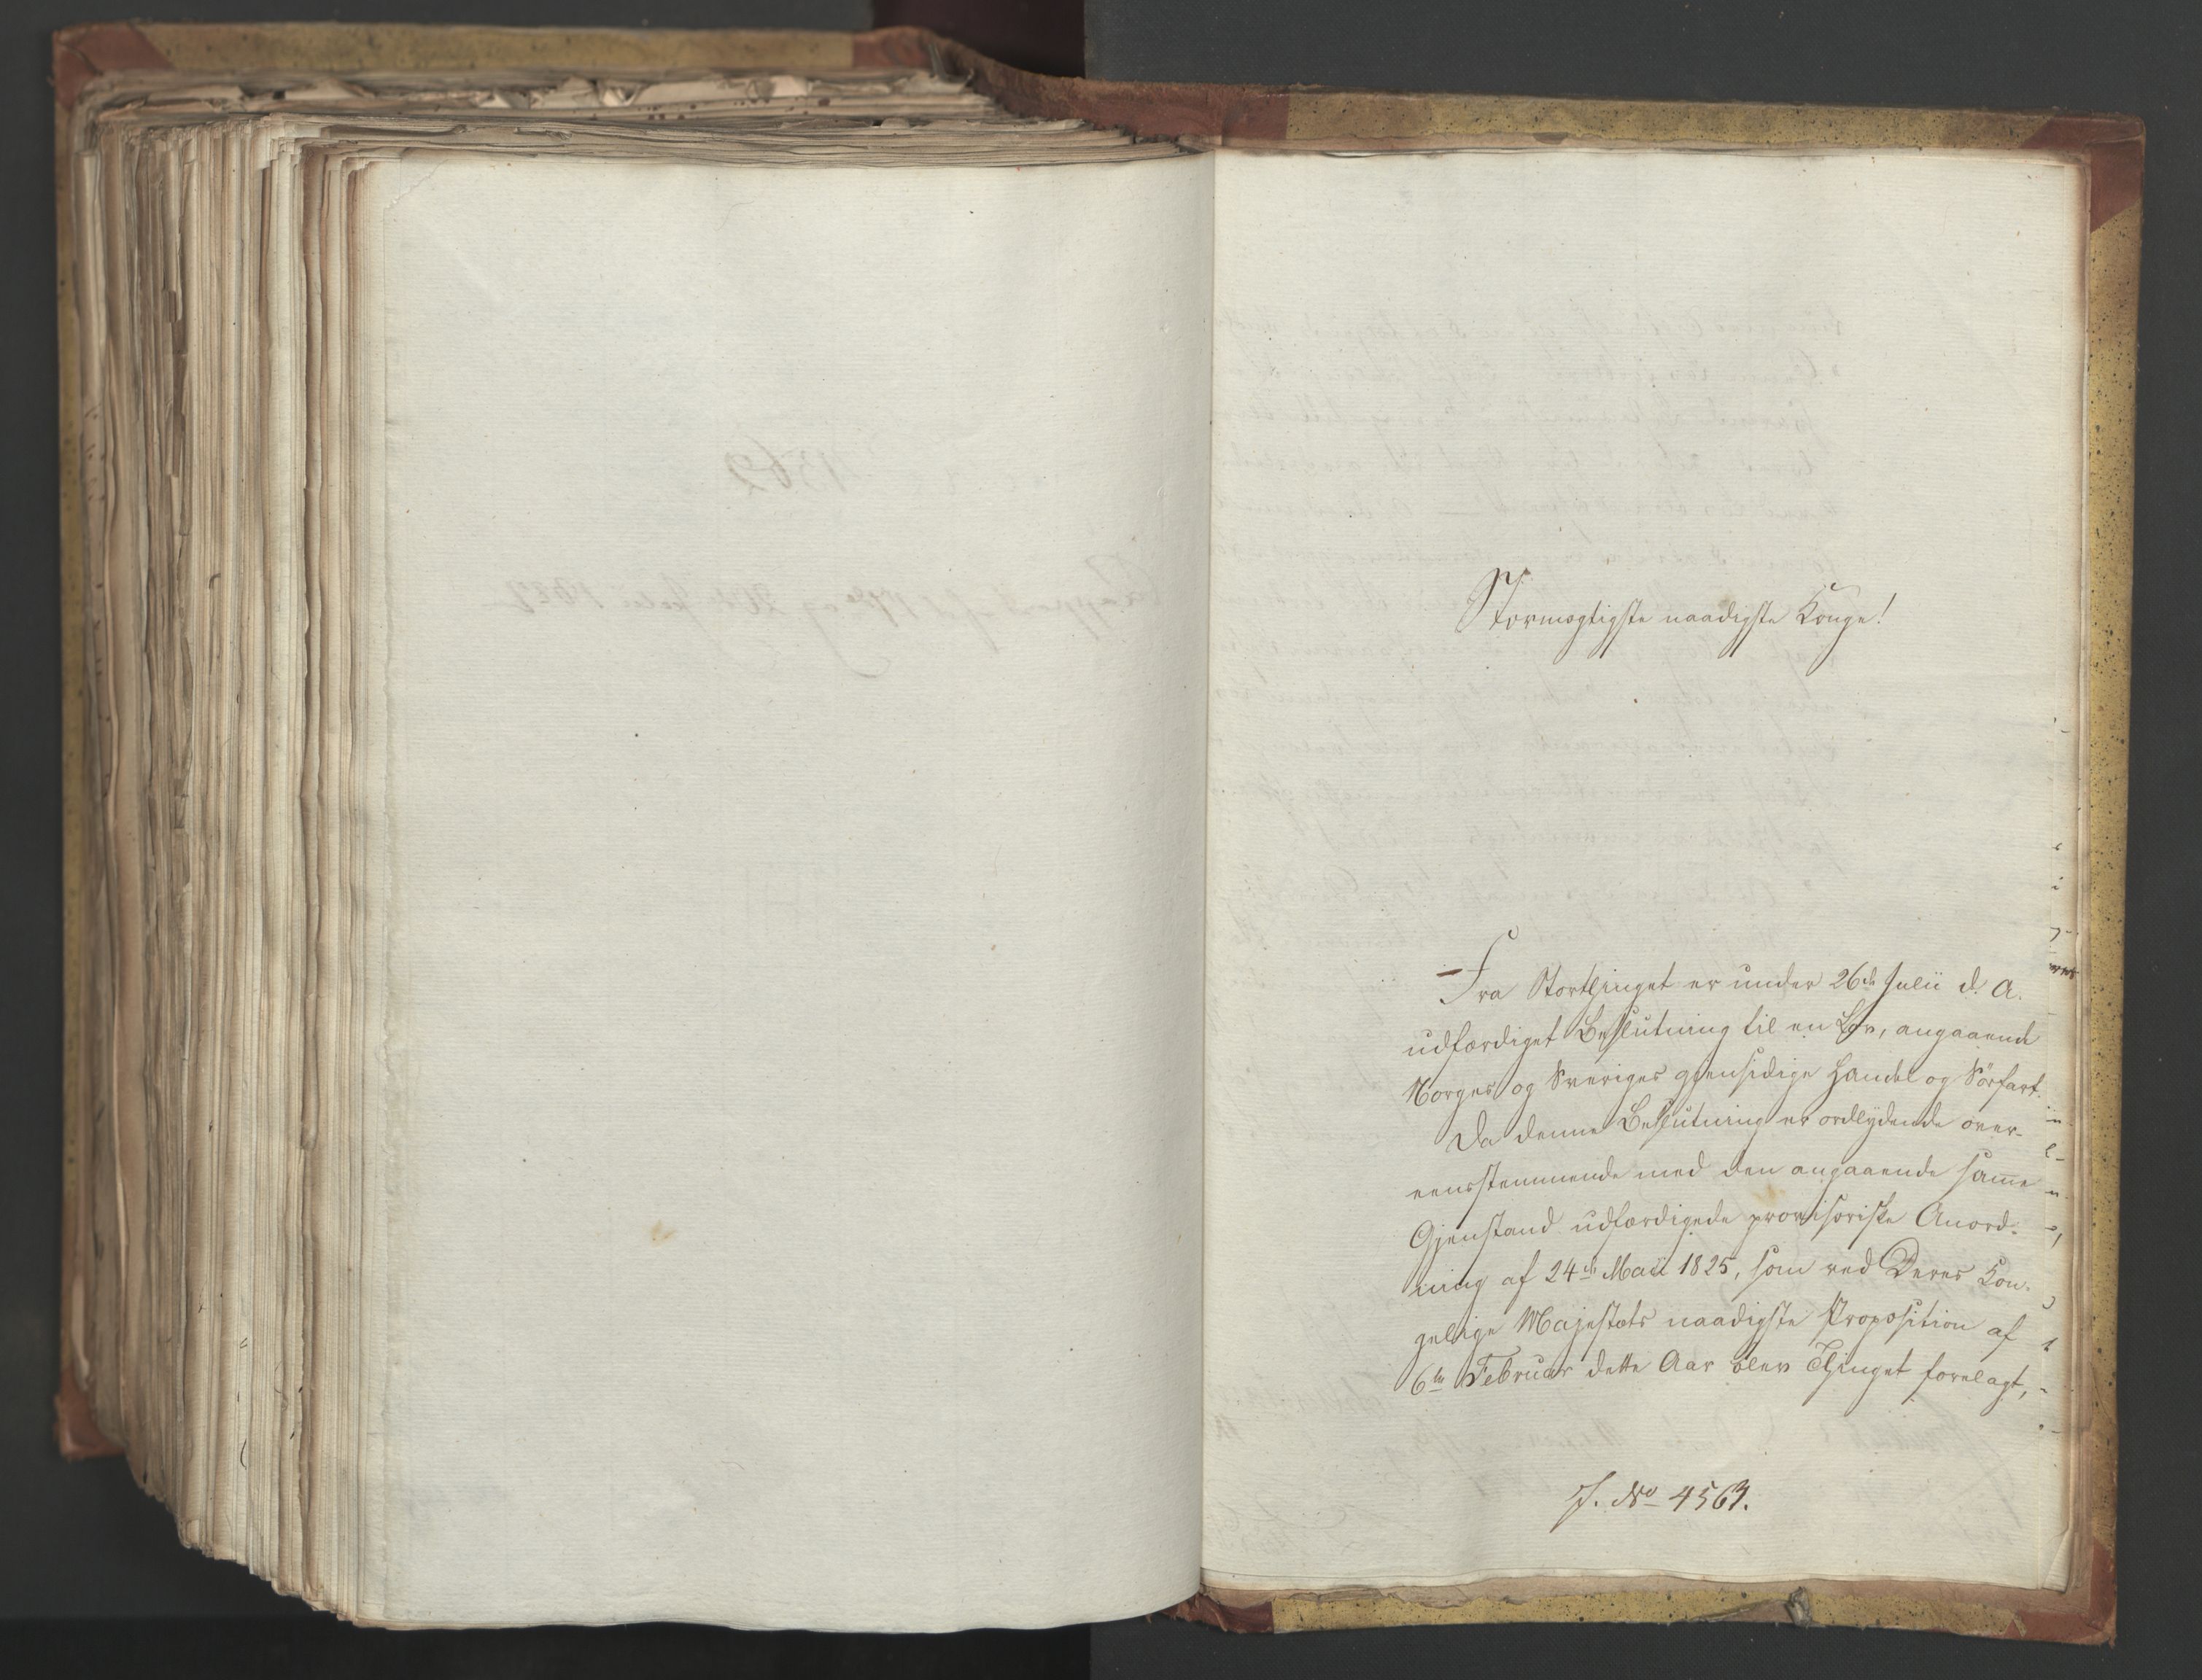 Stormægtigste naadigste Konge!
Fra Storthinget er under 26de Julii d. A.
udfærdiget Beslutning til en Lov, angaaende
Norges og Sveriges gjensidige Handel og Söefart.
Da denne Beslutning er ordlydende over-
eensstemmende med den angaaende samme
Gjenstand udfærdigede provisoriske Anord-
ning af 24de Maii 1825, som ved Deres Kon-
gelige Majestæts naadigste Proposition af
6te Februar dette Aar blev Thinget forelagt,
J. No 4567.